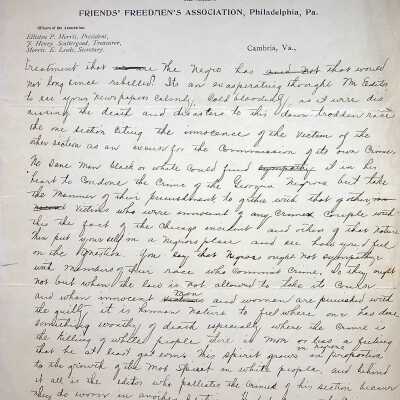 FRIENDS' FREEDMEN'S ASSOCIATION, Philadelphia, Pa.
Officers of the Association.
Elliston P. Morris, President,
J. Henry Scattergood, Treasurer,
Morris E. Leeds, Secretary.
Cambria, Va.,
treatment that the Negro has that would
not long since rebelled? Its an exasperating thought Mr Editor
to see your Newspapers calmly, Cold bloodedly, as it were dis
cussing the death and disasters to this down trodden race
the one section citing the instance of the victim of the
other section as an excuse for the Commission of its own Crimes
No Sane Man black or white could find sympathy it in his
heart to Condone the Crime of the Georgia Negroes but take
the Manner of their punishment together with that of other
Victims who were innocent of any Crime Couple with
this the fact of the Chicago incident and others of that Nature
then put yourself in a Negroes place and see how you'd feel
on the question. You say that Negroes ought not sympathize
with members of their race who Commit Crime, So they ought
not but when the law is not allowed to take its Course
and when innocent Men and women are punished with
the guilty, it is human Nature to feel where one has done
something worthy of death especially where the Crime is
the killing of white people there is more or less a feeling
that he at least got some. This spirit grows in Negroes in proportion
to the growth of the Mob Spirit in white people, and behind
it all is the Editor who palliates the Crimes of his section because
they do worse in another section.